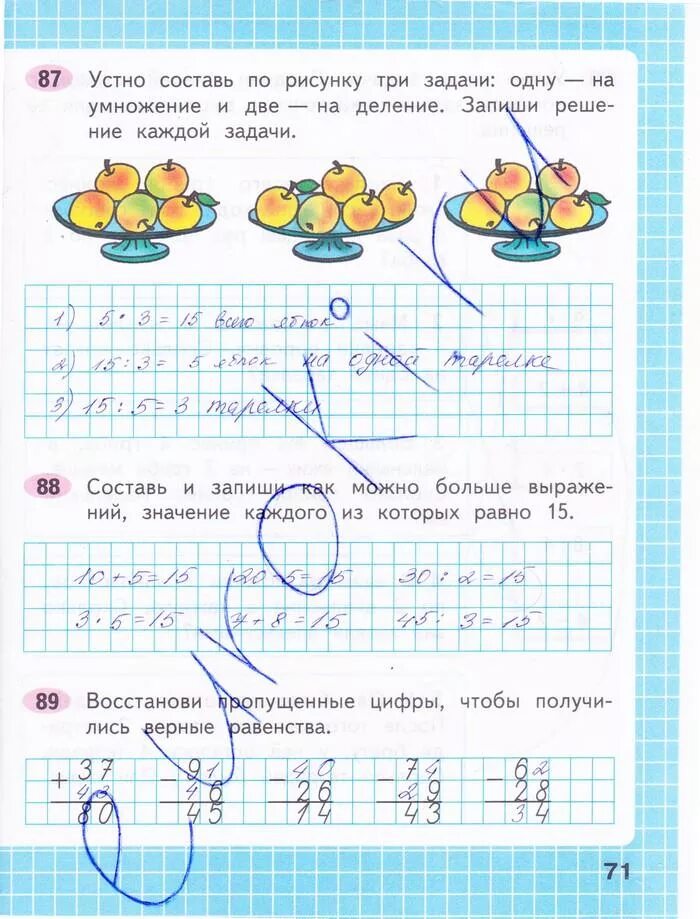 87 Устно составь по рисунку три задачи: одну — на
умножение и две — на деление. Запиши реше-
ние каждой задачи.
1) 5 · 3 = 15 всего яблок
2) 15 : 3 = 5 яблок на одной тарелке
3) 15 : 5 = 3 тарелки
88 Составь и запиши как можно больше выраже-
ний, значение каждого из которых равно 15.
10 + 5 = 15 20 - 5 = 15 30 : 2 = 15
3 · 5 = 15 7 + 8 = 15 45 : 3 = 15
89 Восстанови пропущенные цифры, чтобы получи-
лись верные равенства.
+ 37 - 91 - 40 - 74 - 62
43 46 26 29 28
80 45 14 43 34
71